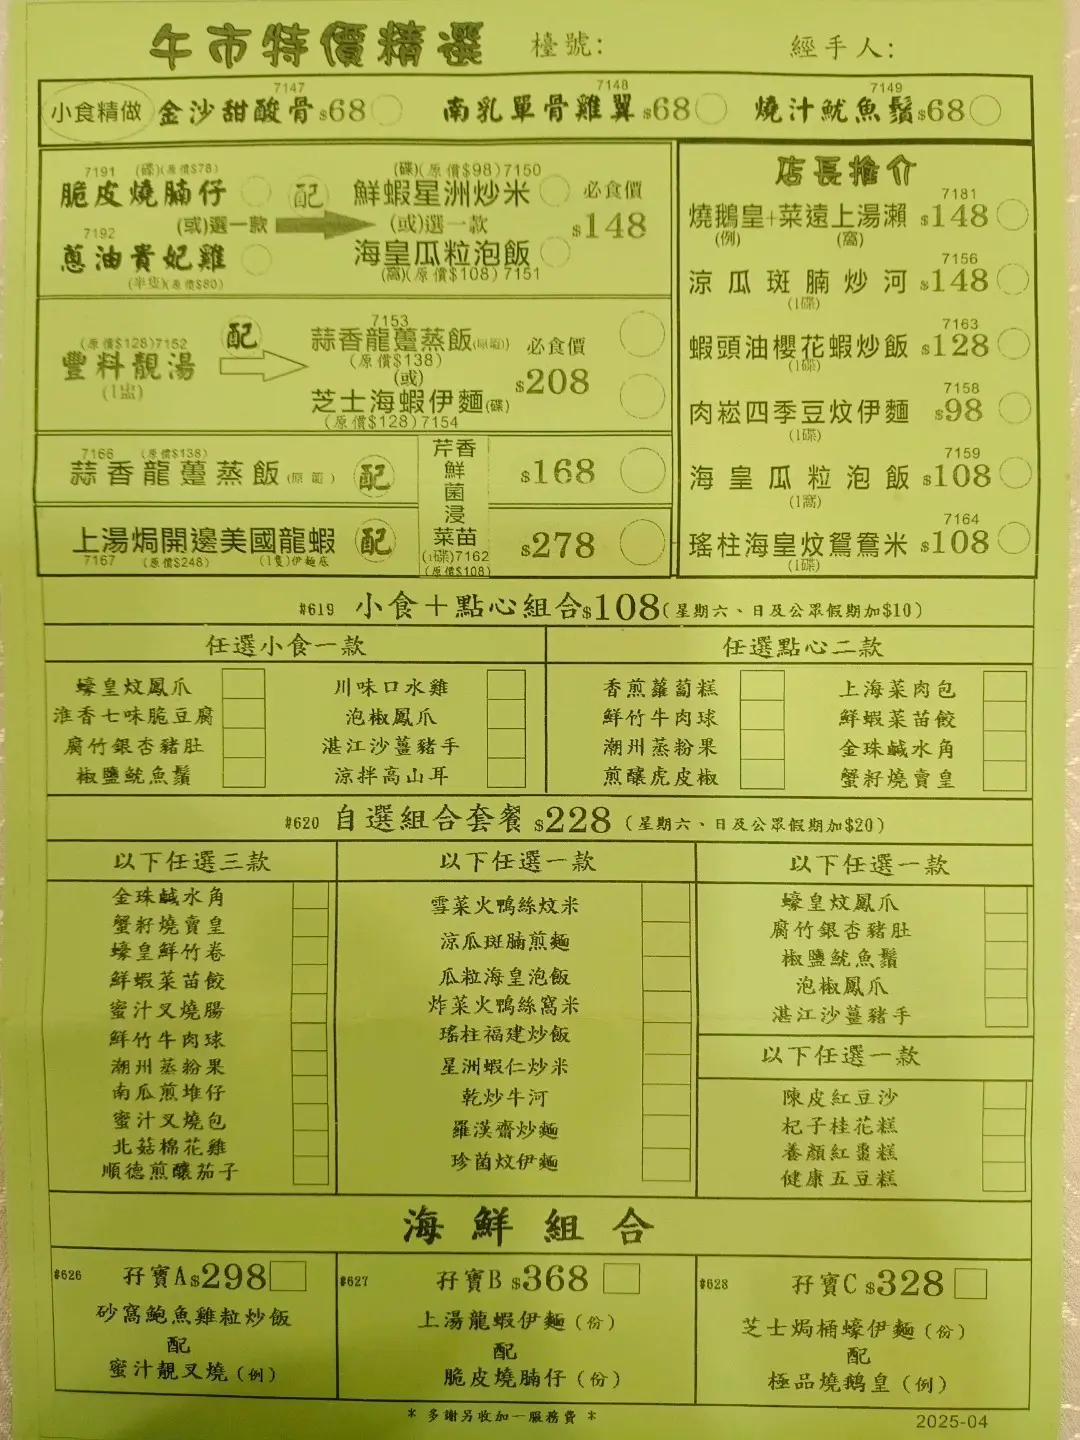 午市特價精選 檯號: 經手人:
小食精做 金沙甜酸骨$68 7147 南乳單骨雞翼$68 7148 燒汁魷魚鬚$68 7149
7191 (碟)(原價$78)
脆皮燒腩仔
(或)選一款
7192
蔥油貴妃雞
(半隻)(原價$80)
配
(碟)(原價$98)7150
鮮蝦星洲炒米
(或)選一款
海皇瓜粒泡飯
(窩)(原價$108)7151
必食價
$148
(原價$128)7152
豐料靚湯
(1盅)
配
7153
蒜香龍躉蒸飯(原籠)
(原價$138)
(或)
芝士海蝦伊麵(碟)
(原價$128)7154
必食價
$208
7166 (原價$138)
蒜香龍躉蒸飯(原籠) 配 $168
上湯焗開邊美國龍蝦 配 $278
7167 (原價$248) (1隻)伊麵底
芹香
鮮
菌
浸
菜苗
(1碟)7162
(原價$108)
店長推介
7181
燒鵝皇+菜遠上湯瀨 $148
(例) (窩)
7156
涼瓜斑腩炒河 $148
(1碟)
7163
蝦頭油櫻花蝦炒飯 $128
(1碟)
7158
肉崧四季豆炆伊麵 $98
(1碟)
7159
海皇瓜粒泡飯 $108
(1窩)
7164
瑤柱海皇炆鴛鴦米 $108
(1碟)
#619 小食+點心組合$108(星期六、日及公眾假期加$10)
任選小食一款
蠔皇炆鳳爪 川味口水雞
淮香七味脆豆腐 泡椒鳳爪
腐竹銀杏豬肚 湛江沙薑豬手
椒鹽魷魚鬚 涼拌高山耳
任選點心二款
香煎蘿蔔糕 上海菜肉包
鮮竹牛肉球 鮮蝦菜苗餃
潮州蒸粉果 金珠鹹水角
煎釀虎皮椒 蟹籽燒賣皇
#620 自選組合套餐 $228 (星期六、日及公眾假期加$20)
以下任選三款
金珠鹹水角
蟹籽燒賣皇
蠔皇鮮竹卷
鮮蝦菜苗餃
蜜汁叉燒腸
鮮竹牛肉球
潮州蒸粉果
南瓜煎堆仔
蜜汁叉燒包
北菇棉花雞
順德煎釀茄子
以下任選一款
雪菜火鴨絲炆米
涼瓜斑腩煎麵
瓜粒海皇泡飯
炸菜火鴨絲窩米
瑤柱福建炒飯
星洲蝦仁炒米
乾炒牛河
羅漢齋炒麵
珍菌炆伊麵
以下任選一款
蠔皇炆鳳爪
腐竹銀杏豬肚
椒鹽魷魚鬚
泡椒鳳爪
湛江沙薑豬手
以下任選一款
陳皮紅豆沙
杞子桂花糕
養顏紅棗糕
健康五豆糕
海鮮組合
#626 孖寶A$298
砂窩鮑魚雞粒炒飯
配
蜜汁靚叉燒(例)
#627 孖寶B $368
上湯龍蝦伊麵(份)
配
脆皮燒腩仔(份)
#628 孖寶C $328
芝士焗桶蠔伊麵(份)
配
極品燒鵝皇(例)
* 多謝另收加一服務費 *
2025-04